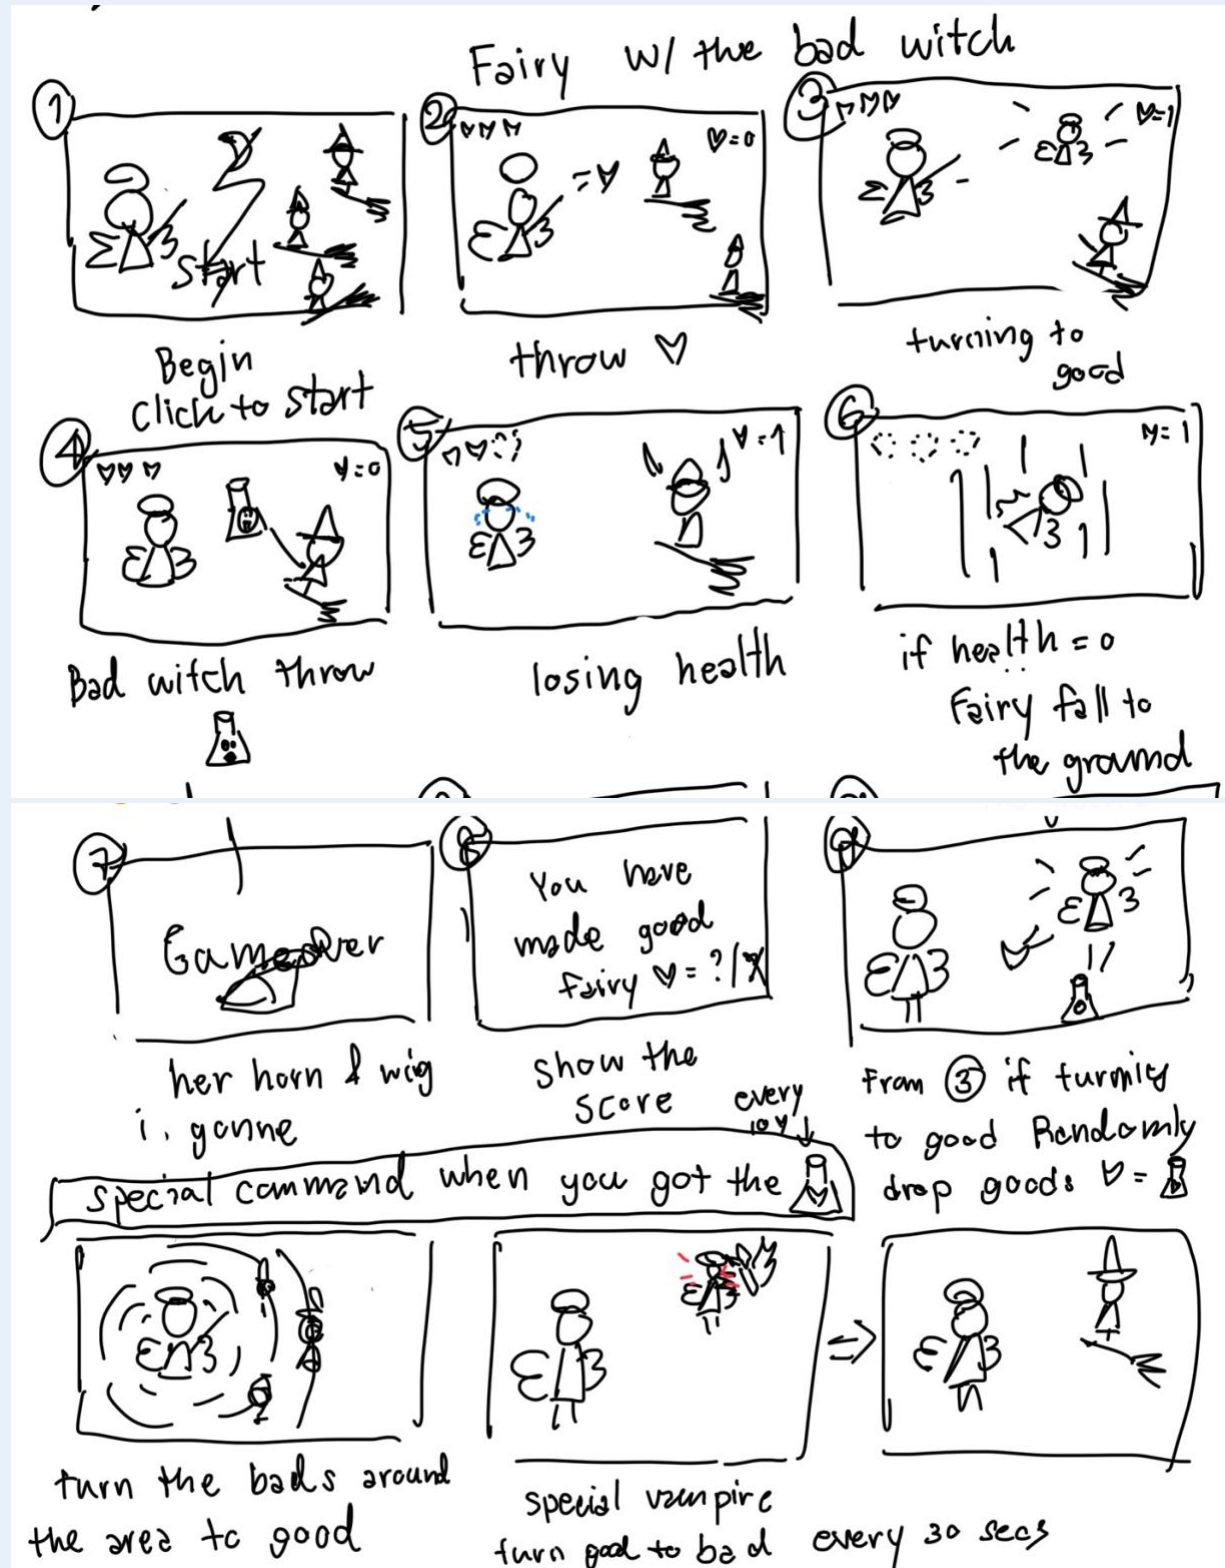 Fairy w/ the bad witch
①
start
Begin
click to start
②
♡=0
throw ♡
③
♡=1
turning to
good
④
♡=0
Bad witch throw
⑤
♡=1
losing health
⑥
♡=1
if health = 0
Fairy fall to
the ground
⑦
Game Over
her horn & wig
i. gonne
⑧
You have
made good
fairy ♡ = ?/X
show the
score
⑨
From ③ if turning
to good Randomly
drop goods ♡ =
every
10♡↓
special command when you got the
turn the bads around
the area to good
special vampire
turn good to bad
⇒
every 30 secs